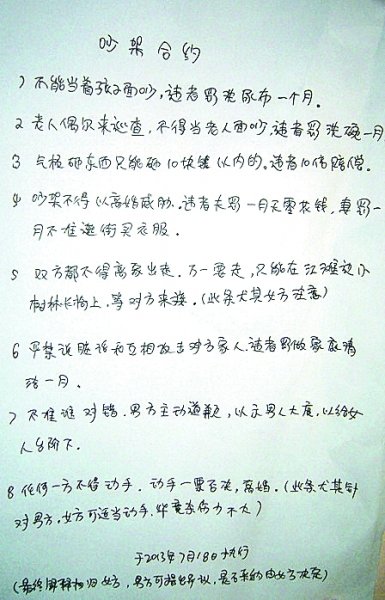 吵架合约
1 不能当着孩子面吵,违者罚洗尿布一个月.
2 老人偶尔来巡查,不得当老人面吵,违者罚洗碗一月
3 气极砸东西只能砸10块钱以内的.违者10倍赔偿.
4 吵架不得以离婚威胁.违者夫罚一月无零花钱,妻罚一
月不准逛街买衣服.
5 双方都不得离家出走.万一要走,只能在江湾边小
树林长椅上,等对方来接.(此条尤其女方注意)
6 严禁说脏话和互相攻击对方家人.违者罚做家庭清
洁一月.
7 不准谁对错.男方主动道歉,以示男人大度,以给女
人台阶下.
8 任何一方不得动手.动手一票否决,离婚.(此条尤其针
对男方,女方可适当动手.毕竟杀伤力不大)
于2013年7月18日执行
(最终解释权归女方,男方可提出异议,是否采纳由女方决定)